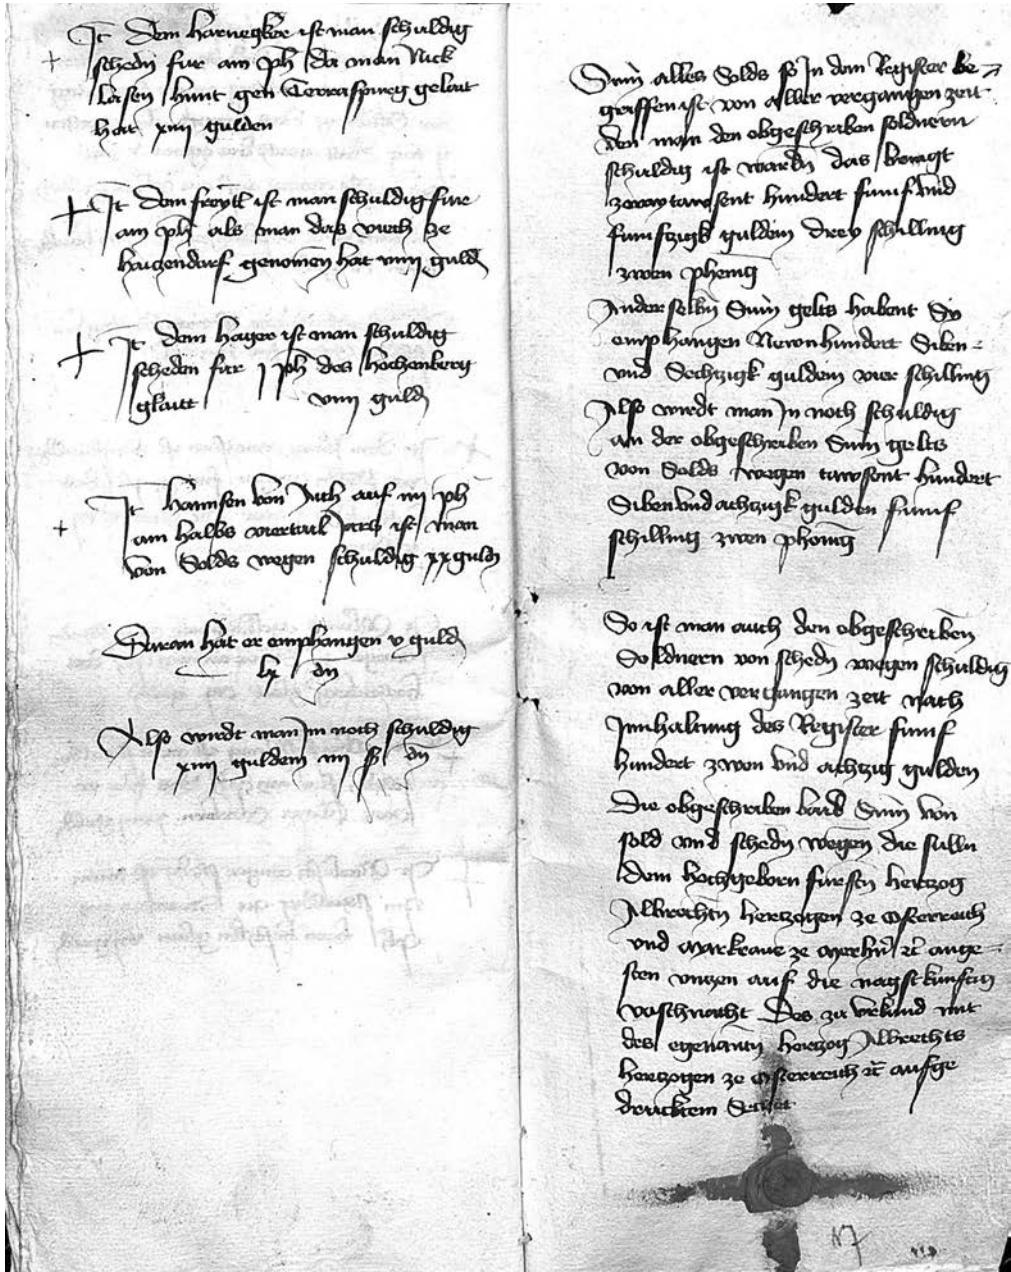 It dem Harnegker ist man schuldig
schedn fur ain ph da man Nick
lasen hunt gen Terraspurg gelait
hat xiiij gulden
It dem freytl ist man schuldig fur
ain ph als man das viech ze
Haczendarf genomen hat viiij guld
It dem Hager ist man schuldig
scheden fur j ph des Hochenberg
glaitt viiij guld
It Hannsen von auf iiij ph
ain halbs viertail Jars ist man
von Solds wegen schuldig xx guldn
Daran hat er emphangen v guld
lx dn
Also wirdt man Jm noch schuldig
xiiij guldein iiij ß dn
Sum alles Solds so Jn dem Register be
griffen ist von aller vergangen zeit
den man den obgeschriben soldnern
schuldig ist wardn das bringt
zwaytawsent Hundert funf vnd
funfczigk guldein drey schilling
zwen phenig
Jn der selbn Sum gelts habent Sy
emphangen Newnhundert Siben
vnd Sechzigk guldein vier schilling
Also wirdt man Jn noch schuldig
an der obgeschriben Sum gelts
von Solds wegen tawsent hundert
Siben vnd achczigk gulden funf
schilling zwen phenig
So ist man auch den obgeschriben
Soldnern von schedn wegen schuldig
von aller vergangen zeit nach
Jnnhaltung des Register funf
hundert zwen vnd achtzig gulden
Die obgeschriben baid Sum von
sold vnd schedn wegen die sulln
dem hochgeborn fursstn herczog
Albrechtn herczogen ze Osterreich
vnd Markraue ze Merhern etc ange
sten vnczen auf die nagstkunftig
vaschnacht Des zu vrkund mit
des egenantn herczog Albrechts
herczogen ze Osterreich etc aufge
drucktem Secret